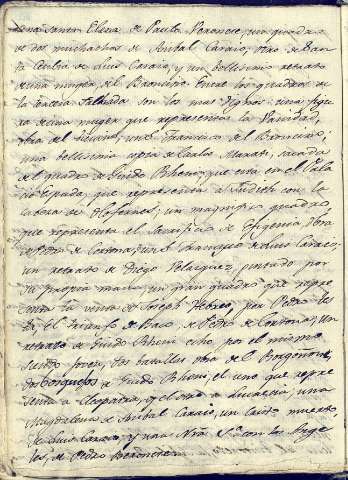 una Santa Elena de Paulo Veronese, un quadro
de dos muchachos de Anibal Caracio, otro de San
ta Cecilia de Luis Caracio, y un bellissimo retrato
de una muger del Bronsino. Entre los quadros de
la tercera son los mas dignos: una figu
ra de una muger que representa la Vanidad,
obra del Ticiano, un S. Francisco del
una bellissima copia de Carlos Marati, sacada
del quadro de Guido Rheni, que está en el Pala
cio Espada, que representa a Judith con la
cabeza de Holofernes; un magnifico quadro
que representa el Sacrificio de Efigenia obra
de Pedro de Cortona; un S. de Luis Caracio;
un retrato de Diego Velazquez, pintado por
su propria mano, un gran quadro que repre
senta la venta de Joseph Hebreo, por Pedro Tes
ta, el triunfo de Baco, de Pedro de Cortona; un
retrato de Guido Rheni echo, por el mismo
siendo joven, dos batallas obra del Borgoñone,
dos bosquejos de Guido Rheni, el uno que repre
senta a Cleopatra, y el otro a Lucrecia; una
Magdalena de Anibal Caracio, un Cristo muerto,
de Luis Caracio, y una Nra. Sa. con los Ange
les, de Pedro